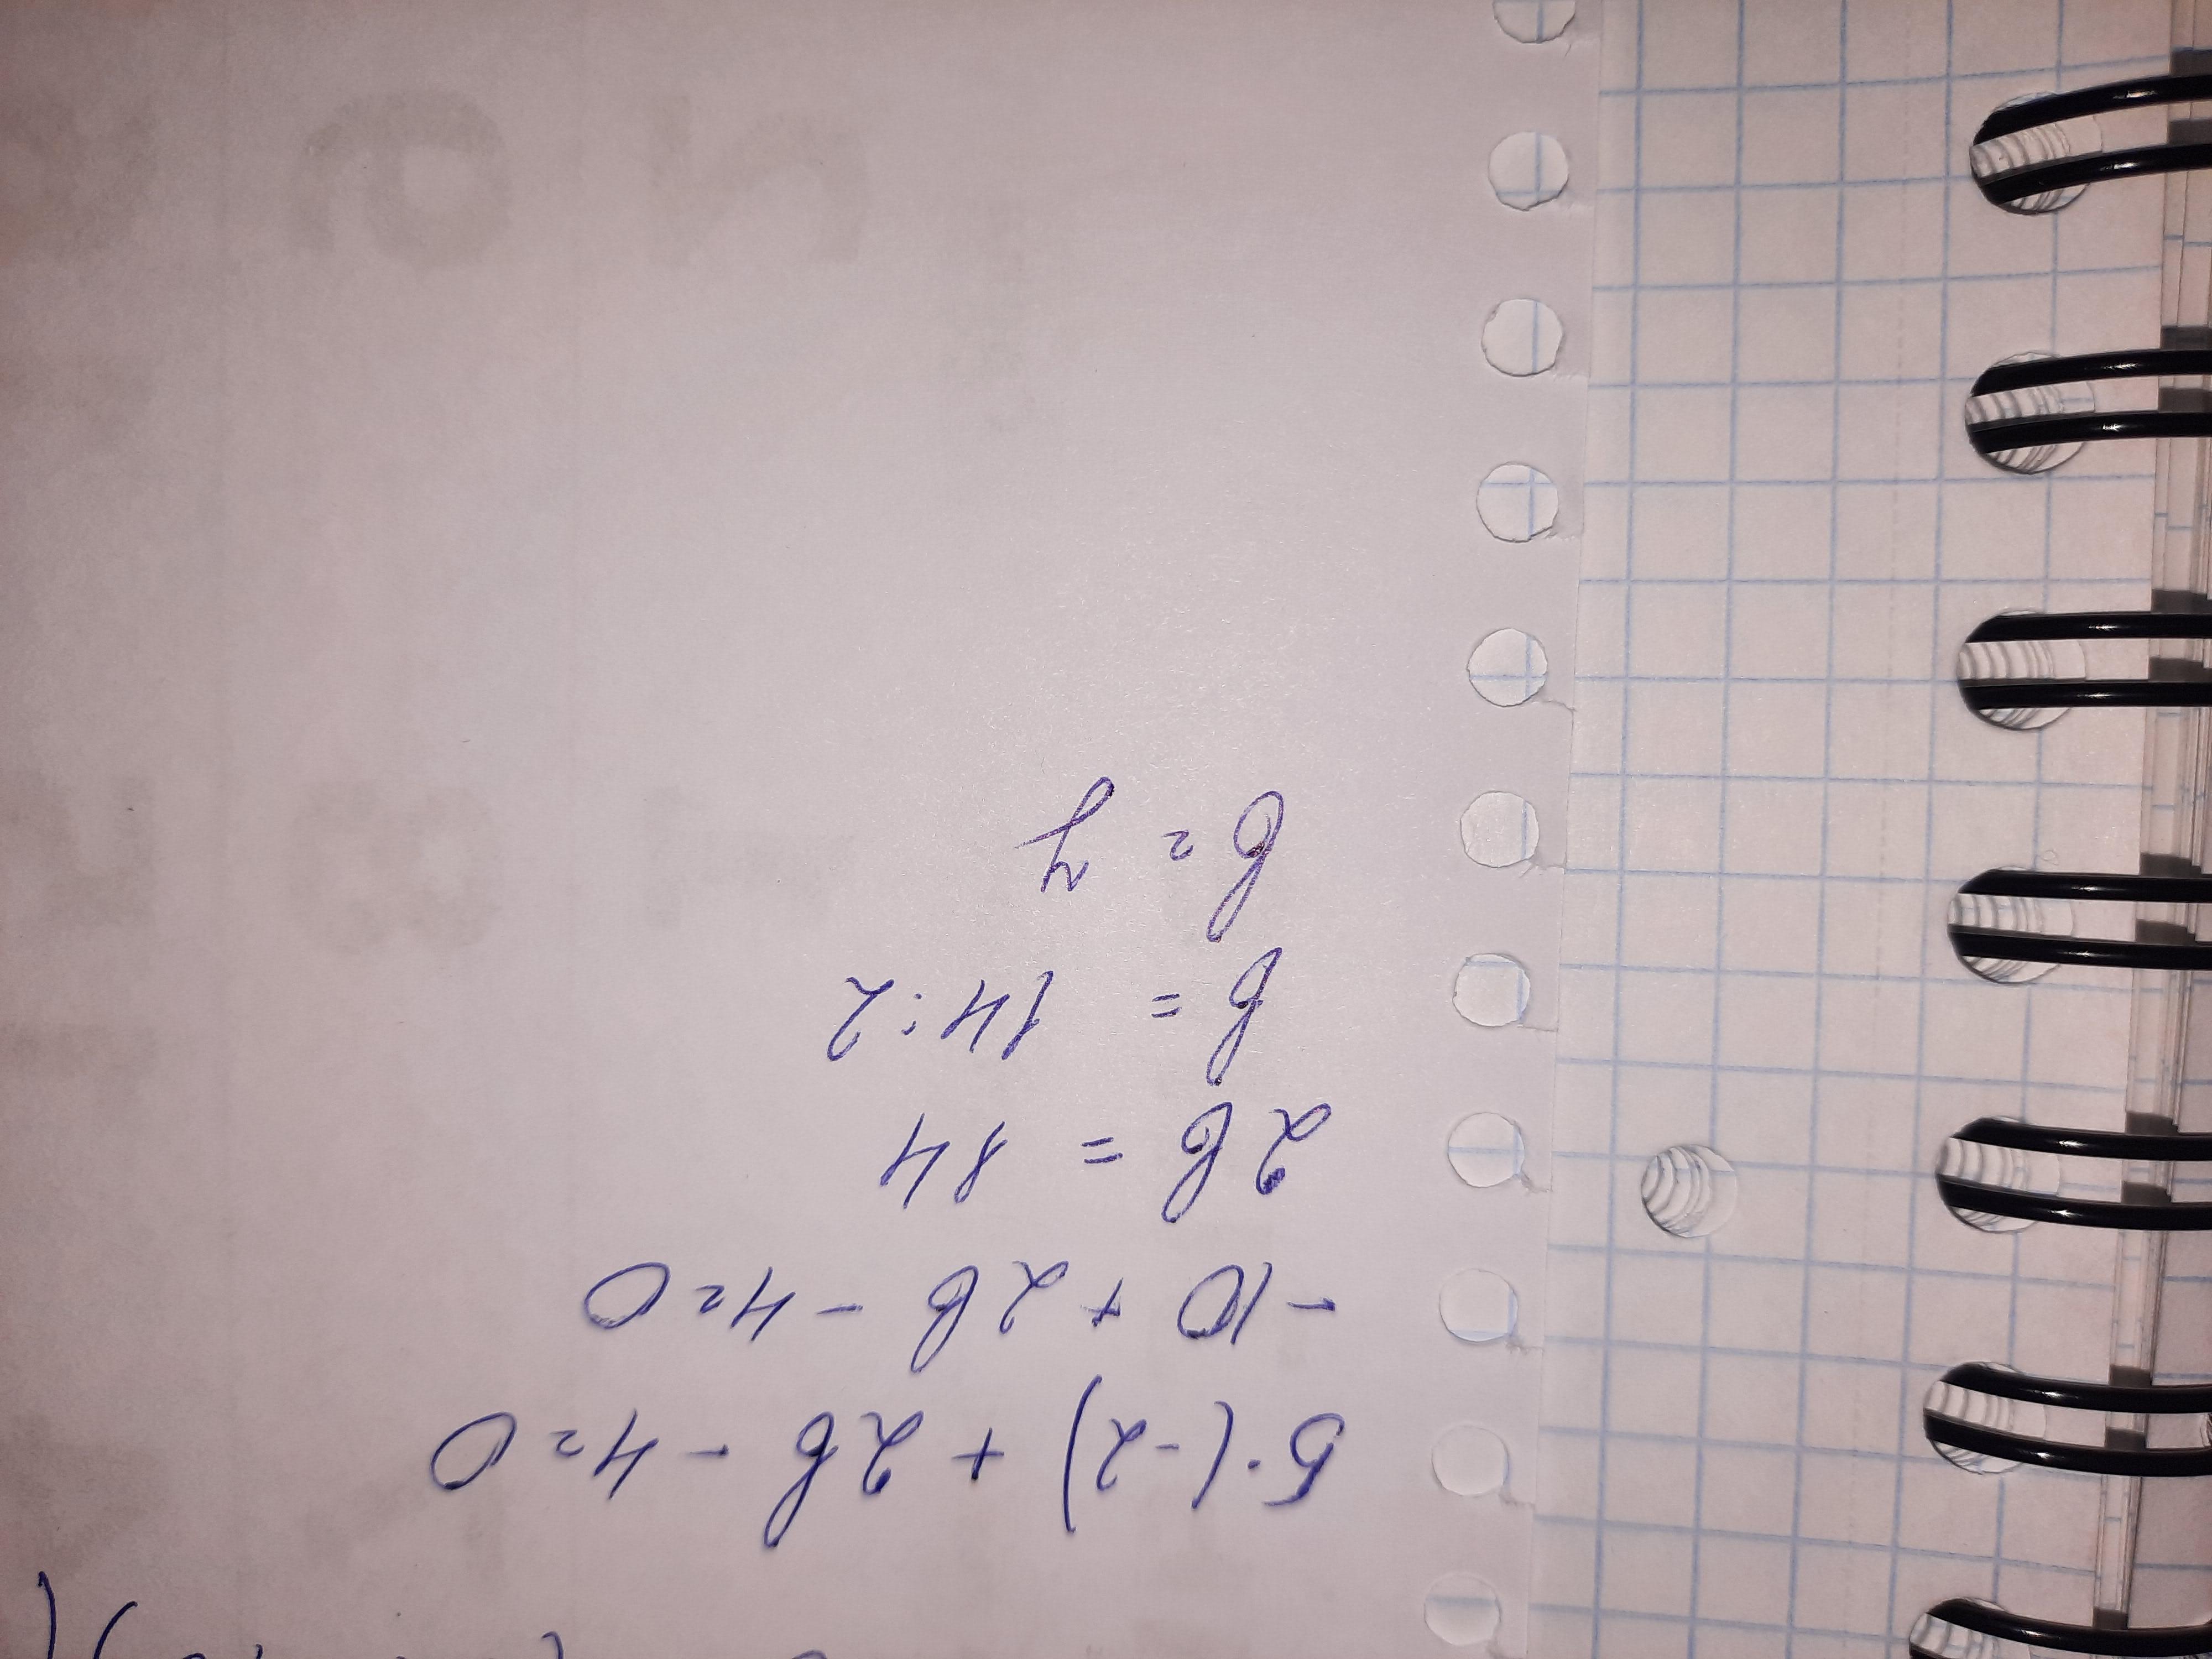 5·(-2) + 2b - 4 = 0
-10 + 2b - 4 = 0
2b = 14
b = 14:2
b = 7